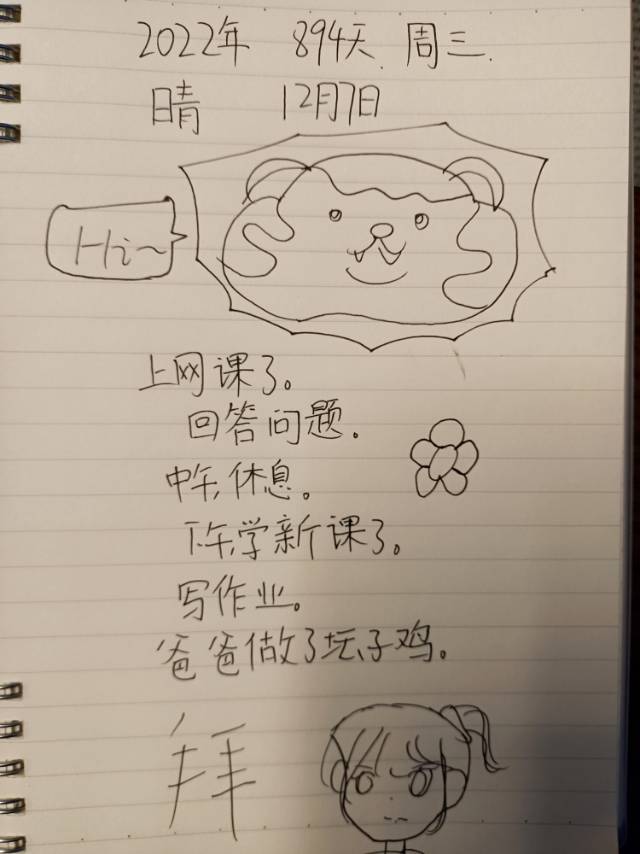 2022年 894天 周三
晴 12月7日
Hi~
上网课了。
回答问题。
中午休息。
下午学新课了。
写作业。
爸爸做了坛子鸡。
拜